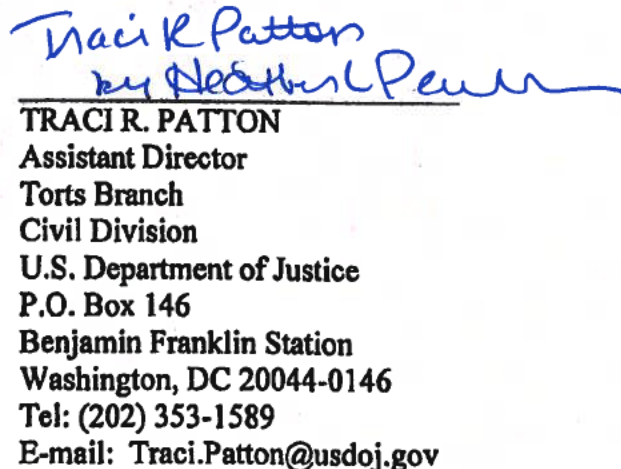 Traci R Patton
by Heather L Pearl
TRACI R. PATTON
Assistant Director
Torts Branch
Civil Division
U.S. Department of Justice
P.O. Box 146
Benjamin Franklin Station
Washington, DC 20044-0146
Tel: (202) 353-1589
E-mail: Traci.Patton@usdoj.gov